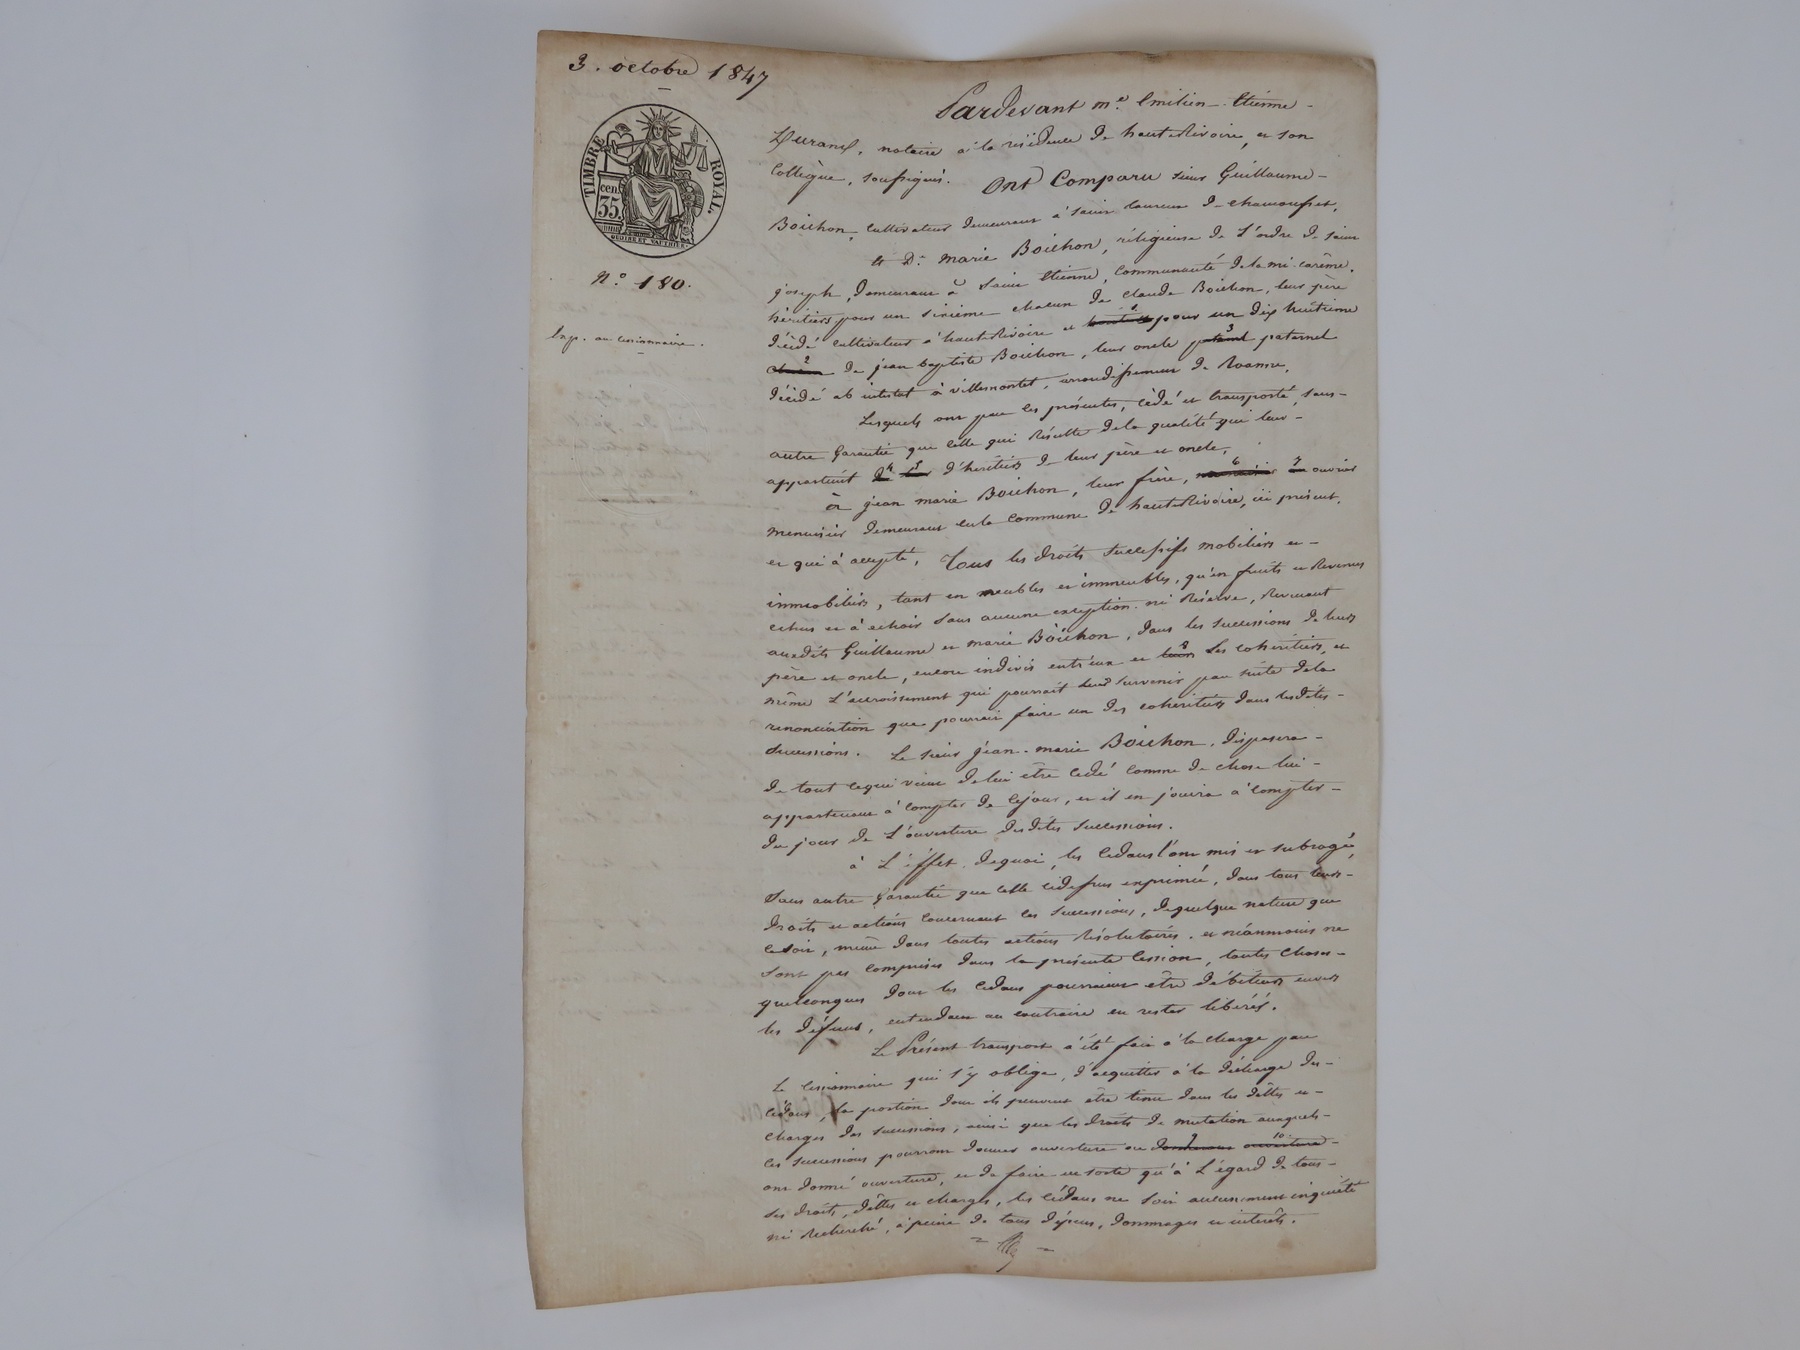 3. octobre 1847
TIMBRE ROYAL.
cen.
35.
N.o 180.
Exp. au cessionnaire.
Pardevant m.e Emilien-Etienne-
Durand, notaire à la résidence de haute Rivoire, et son
Collègue, soussignés. Ont Comparu sieur Guillaume-
Boichon, cultivateur demeurant à saint laurent de chamousset,
et D.e marie Boichon, réligieuse de l'ordre de saint
joseph, demeurant à saint Etienne, communauté de la mi-carême,
héritiers pour un sixième chacun de Claude Boichon, leur père
décédé cultivateur à haute Rivoire et 1 pour un dix huitième
2 de jean baptiste Boichon, leur oncle 3 paternel
décédé ab intestat à villemontet, arrondissement de Roanne.
Lesquels ont par ces présentes, cédé et transporté, sans-
autre garantie que celle qui résulte de la qualité qui leur-
appartient 4 5 d'héritiers de leur père et oncle,
à jean marie Boichon, leur frère, 6 7 ouvrier
menuisier demeurant en la commune de haute Rivoire, ici présent,
et qui à accepté, Tous les droits successifs mobiliers et-
immobiliers, tant en meubles et immeubles, qu'en fruits et Revenus
echus et à echoir sans aucune exception ni Réserve, Revenant
auxdits Guillaume et marie Boichon, dans les successions de leurs
père et oncle, encore indivis entr'eux et 8 les cohéritiers, et
même l'accroissement qui pourrait leur survenir par suite de la
renonciation que pourrait faire un des cohéritiers dans lesdites-
successions. Le sieur jean-marie Boichon, disposera-
de tout cequi vient de lui être cédé comme de chose lui-
appartenant à compter de cejour, et il en jouira à compter-
du jour de l'ouverture desdites successions.
à l'éffet dequoi, les cédans l'ont mis et subrogé,
sans autre garantie que celle cidessus exprimée, dans tous leurs-
droits et actions concernant ces successions, dequelque nature que
cesoit, même dans toutes actions Résolutoires. et néanmoins ne
sont pas comprises dans la présente cession, toutes choses-
quelconques dont les cédans pourraient être débiteurs envers
les défunts, entendant au contraire en rester libérés.
Le Présent transport à été fait à la charge par
le cessionnaire qui s'y oblige, d'acquitter à la décharge des-
cédans, la portion dont ils peuvent être tenus dans les dêttes et-
charges des successions, ainsi que les droits de mutation auxquels-
ces successions pourront donner ouverture ou 9 ouverture 10-
ont donné ouverture, et de faire en sorte qu'à l'égard de tous-
ces droits, dêttes et charges, les cédans ne soit aucunement inquiété
ni Recherché, à peine de tous dépens, dommages et intérêts.